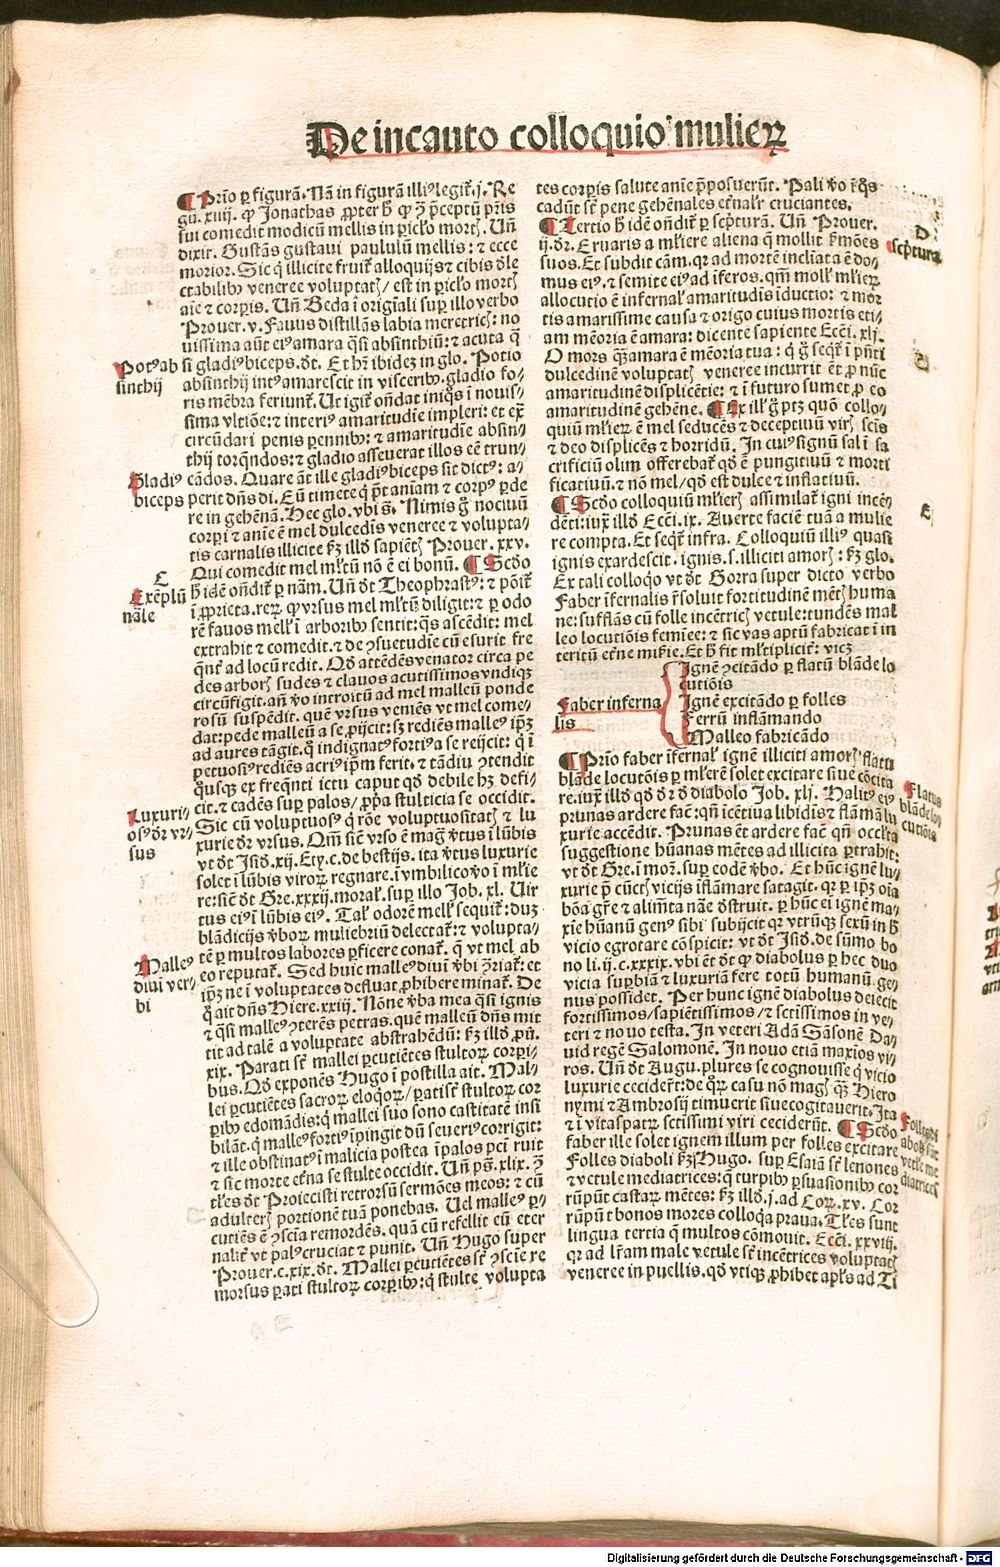 De incauto colloquio mulieꝝ
¶ Prīo ꝑ figurā. Nā in figurā illiꝰ legit̉. j. Re
gū. xiiij. ꝙ Jonathas ꝓpter h̄ ꝙ ꝯ̄ p̄ceptū pr̄is
sui comedit modicū mellis in ꝑic̄lo mort̉. Un̄
dixit. Gustās gustaui paululū mellis: ⁊ ecce
morior. Sic q̇ illicite fruit̉ alloquijs ⁊ cibis d̄le
ctabilibꝰ veneree voluptat̉/ est in ꝑic̄lo mort̉
aīe ⁊ corꝑis. Un̄ Beda ī origīali suꝑ illo verbo
Prouer. v. Fauus distillās labia meretric̉: no
uissima aūt eiꝰ amara q̄si absinthiū: ⁊ acuta q̄
si gladiꝰ biceps. d̄t. Et hr̄ ibidez in glo. Potio
Potꝰ ab
sinthij
absinthij intꝰ amarescit in visceribꝰ. gladio fo⸗
ris mēbra feriunt̉. Ut igit̉ on̄dat iniq̄s ī nouis⸗
sima vltiōe: ⁊ interiꝰ amaritudīe impleri: et ex̄
circūdari penis ꝑennibꝰ: ⁊ amaritudīe absin⸗
thij torq̄ndos: ⁊ gladio asseuerat illos eē trun⸗
cādos. Quare āt ille gladiꝰ biceps sit dictꝰ: a⸗
Gladiꝰ
biceps
perit dn̄s di. Eū timete q̇ p̄t aīam ⁊ corpꝰ ꝑde
re in gehēnā. Hec glo. vbi s̄. Nimis g̊ nociuū
corꝑi ⁊ anīe ē mel dulcedīs veneree ⁊ volupta⸗
tis carnalis illicite ẜm illd̓ sapiēt̉ Prouer. xxv.
Qui comedit mel ml̓tū nō ē ei bonū. ¶ Scd̓o
C
Exēplū
nāle
h̄ idē on̄dit̉ ꝑ nām. Un̄ d̄t Theophrastꝰ: ⁊ pōit̉
ī ꝓprieta. reꝝ ꝙ vrsus mel ml̓tū diligit: ⁊ ꝑ odo
rē fauos mell̉ ī arboribꝰ sentit: q̄s ascēdit: mel
extrahit ⁊ comedit. ⁊ de ꝯsuetudīe cū esurit fre
q̄nt̉ ad locū redit. Qd̓ attēdēs venator circa pe
des arbor̉ sudes ⁊ clauos acutissimos vndiqꝫ
circūfigit. an̄ v̊o introitū ad mel malleū ponde
rosū suspēdit. quē vrsus veniēs vt mel come⸗
dat: pede malleū a se ꝓijcit: sꝫ rediēs malleꝰ ip̄ꝫ
ad aures tāgit. q̇ indignatꝰ fortiꝰ a se reijcit: q̇ ī
petuosiꝰ rediēs acriꝰ ip̄m ferit. ⁊ tādiu ꝯtendit
q̊usqꝫ ex freq̄nti ictu caput qd̓ debile hꝫ defi⸗
cit. ⁊ cadēs suꝑ palos/ ꝓp̄a stulticia se occidit.
Luxuri⸗
osꝰ d̓r vr⸗
sus
Sic cū voluptuosꝰ q̇ rōe voluptuositat̉ ⁊ lu
xurie d̓r vrsus. Qm̄ sicē vrso ē mag̓ v̓tus ī lūbis
vt d̄t Jsid̓. xij. Ety. c. de bestijs. ita v̓tus luxurie
solet ī lūbis viroꝝ regnare. ī vmbilico v̊o ī ml̓ie
re: sicē d̄t Gre. xxxij. moral̓. suꝑ illo Job. xl. Uir
tus eiꝰ ī lūbis eiꝰ. Tal̓ odorē mell̉ sequit̉: duꝫ
blādicijs v̓boꝝ muliebriū delectat̉: ⁊ volupta⸗
tē ꝑ multos labores ꝑficere conat̉. q̄ vt mel ab
Malleꝰ
diui ver⸗
bi
eo reputat̉. Sed huic malleꝰ diuī v̓bi ꝯ̄riat̉: et
ip̄ꝫ ne ī voluptates defluat ꝓhibere minat̉. De
q̊ ait dn̄s Hiere. xxiij. Nōne v̓ba mea q̄si ignis
⁊ q̄si malleꝰ ꝯterēs petras. quē malleū dn̄s mit
tit ad talē a voluptate abstrahēdū: ẜm illd̓. ꝓu̓.
xix. Parati st̄ mallei ꝑcutiētes stultoꝝ corꝑi⸗
bus. Qd̓ exponēs Hugo ī postilla ait. Mal⸗
lei ꝑcutiētes sacroꝝ eloq̊ꝝ/ ꝑatisst̄ stultoꝝ cor
ꝑibꝰ edomādis: q̇ mallei suo sono castitatē insi
bilāt. q̇ malleꝰ fortiꝰ īpingit dū seueriꝰ corrigit:
⁊ ille obstinatꝰ ī malicia postea īpalos pc̄i ruit
⁊ sic morte et̓na se stulte occidit. Un̄ ps̄. xlix. ꝯ̄
tl̓es d̄t Proiecisti retrorsū sermōes meos: ⁊ cū
adulter̉ portionē tuā ponebas. Uel malleꝰ ꝑ⸗
cutiēs ē ꝯsciā remordēs. quā cū refellit cū eter
nalit̉ vt palꝰ cruciat ⁊ punit. Un̄ Hugo super
Prouer. c. xix. d̄t. Mallei ꝑcutiētes st̄ ꝯscie re
morsus ꝑati stultoꝝ corꝑibꝰ: q̇ stulte volupta
tes corꝑis salute anīe p̄posuerūt. Pali v̊o ī q̊s
cadūt st̄ pene gehēnales et̓nal̓r cruciantes.
D
scp̄tura
¶ Tertio h̄ idē on̄dit̉ ꝑ scp̄turā. Un̄ Prouer.
ij. d̓r. Eruaris a ml̓iere aliena q̄ mollit s̓mōes
suos. Et subdit cām. qr ad mortē incliata ē do⸗
mus eiꝰ. ⁊ semite eiꝰ ad īferos. qm̄ moll̉ ml̓ieꝝ
allocutio ē infernal̓ amaritudīs īductio: ⁊ mor
tis amarissime causa ⁊ origo cuius mortis eti⸗
am mēoria ē amara: dicente sapiente Ecc̄i. xlj.
O mors q̄ꝫ amara ē mēoria tua: q̇ g̊ seq̄t̉ ī pn̄ti
dulcedinē voluptat̉ veneree incurrit ēt ꝓ nūc
amaritudinē displicētie: ⁊ ī futuro sumet ꝓ eo
amaritudinē gehēne. ¶ Ex ill̓ g̊ ptꝫ quō collo⸗
quiū ml̓ieꝝ ē mel seducēs ⁊ deceptiuū vir̉ scis
⁊ deo displicēs ⁊ horridū. In cuiꝰ signū sal ī sa
crificiū olim offerebat̉ qd̓ ē pungitiuū ⁊ morti
ficatiuū. ⁊ nō mel/ qd̓ est dulce ⁊ inflatiuū.
E
¶ Scd̓o colloquiū ml̓ier̉ assimilat̉ igni incē⸗
dēti: iux̄ illd̓ Ecc̄i. ix. Auerte faciē tuā a mulie
re compta. Et seq̄t̉ infra. Colloquiū illiꝰ quasi
ignis exardescit. ignis. s. illiciti amor̉: ẜm glo.
Ex tali colloq̊o vt d̄t Gorra super dicto verbo
Faber īfernalis īsoluit fortitudinē mēt̉ huma
ne: sufflās cū folle incētric̉ vetule: tundēs mal
leo locutiōis femīee: ⁊ sic vas aptū fabricat ī in
teritū et̓ne mis̓ie. Et h̄ fit ml̓tiplicit̉: vicꝫ
Faber inferna
lis
Ignē ꝯcitādo ꝑ flatū blāde lo
cutiōis
Ignē excitādo ꝑ folles
Ferrū inflāmando
Malleo fabricādo
¶ Prīo faber īfernal̓ ignē illiciti amor̉ flatu
Flatus
blāde lo⸗
cutiōis
blāde locutōis ꝑ ml̓rē solet excitare siue cōcita
re. iux̄ illd̓ qd̓ d̓r d̓ diabolo Job. xlj. Halitꝰ eiꝰ
prunas ardere fac̄: q̄n̄ īcētiua libidīs ⁊ flāmā lu
xurie accēdit. Prunas ēt ardere fac̄ qn̄ occl̓ta
suggestione hūanas mētes ad illicita ꝑtrahit:
vt d̄t Gre. ī mor. suꝑ eodē v̓bo. Et hūc ignē lu⸗
xurie p̄ cūct̉ vicijs īflāmare satagit. qr ꝑ ip̄ꝫ oīa
bōa gr̄e ⁊ alim̄ta nāe d̓struit. ꝑ hūc ei ignē ma⸗
xīe hūanū genꝰ sibi subijcit qr vtrūqꝫ sexū in h̄
vicio egrotare cōspicit: vt d̄t Jsid̓. de sūmo bo
no li. ij. c. xxxix. vbi ēt d̄t ꝙ diabolus ꝑ hec duo
vicia suꝑbiā ⁊ luxuriā fere totū humanū ge⸗
nus possidet. Per hunc ignē diabolus deiecit
fortissimos/ sapiētissimos/ ⁊ sctissimos in ve⸗
teri ⁊ nouo testa. In veteri Adā Sāsonē Da⸗
uid regē Salomonē. In nouo etiā maxīos vi⸗
ros. Un̄ d̄t Augu. plures se cognouisse q̇ vicio
luxurie cecider̄t: de q̊ꝝ casu nō mag̉ q̄ꝫ Hiero
nymi ⁊ Ambrosij timuerit siue cogitauerit. Ita
⁊ ī vitaspatꝝ sctissimi viri ceciderūt. ¶ Scd̓o
Folles di
aboli sūt
vetule me
diatrices
faber ille solet ignem illum per folles excitare
Folles diaboli ẜm Hugo. suꝑ Esaiā st̄ lenones
⁊ vetule mediatrices: q̄ turpibꝰ ꝑsuasionibꝰ cor
rūpūt castaꝝ mētes: ẜm illd̓. j. ad Coꝝ. xv. Cor
rūpūt bonos mores colloq̊a praua. Tl̓es sunt
lingua tertia q̄ multos cōmouit. Ecc̄i. xxviij.
qr ad lr̄am male vetule st̄ incētrices voluptat̉
veneree in puellis. qd̓ vtiqꝫ ꝓhibet apl̓s ad Ti
Digitalisierung gefördert durch die Deutsche Forschungsgemeinschaft - DFG